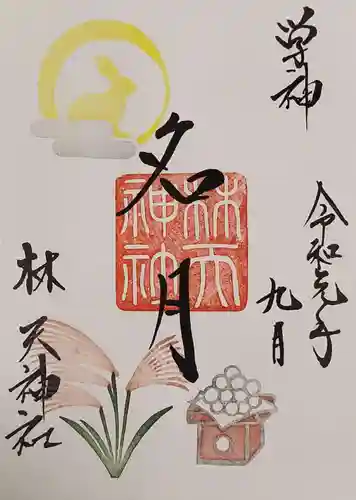 学神
名月
林天神社
令和元年
九月
林天神社